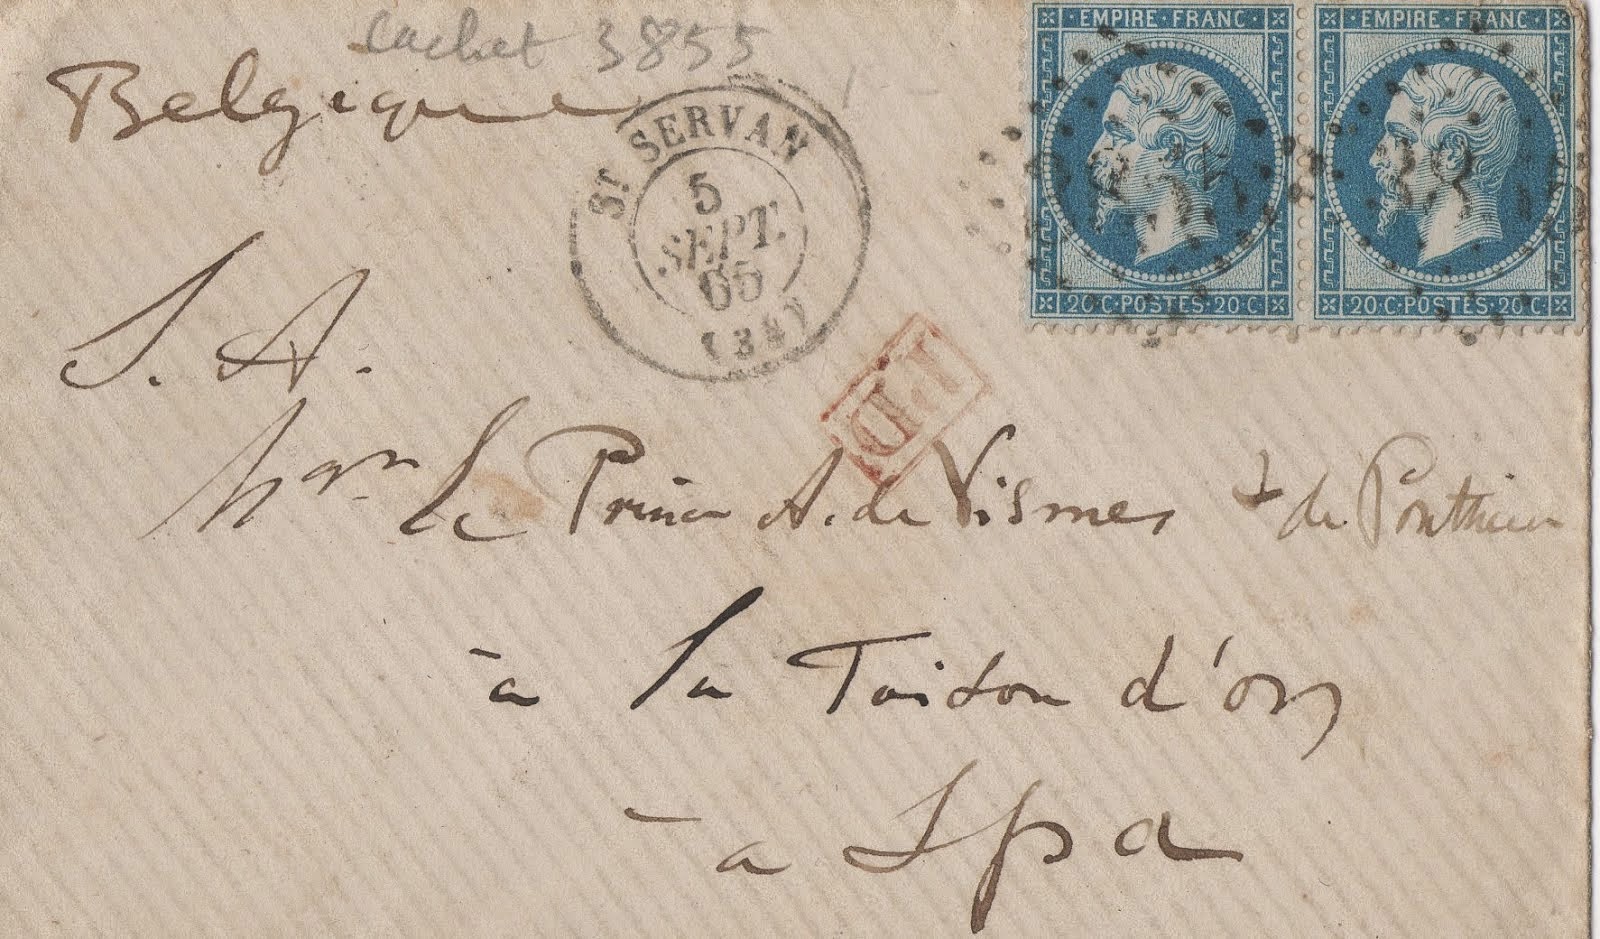 cachet 3855
Belgique
ST SERVAN
5
SEPT.
65
(34)
EMPIRE FRANC
EMPIRE FRANC
3855
3855
20 C POSTES 20 C
20 C POSTES 20 C
P.D
S. A.
Mgr le Prince A. de Vismes & de Ponthieu
à la Toison d'or
à Spa